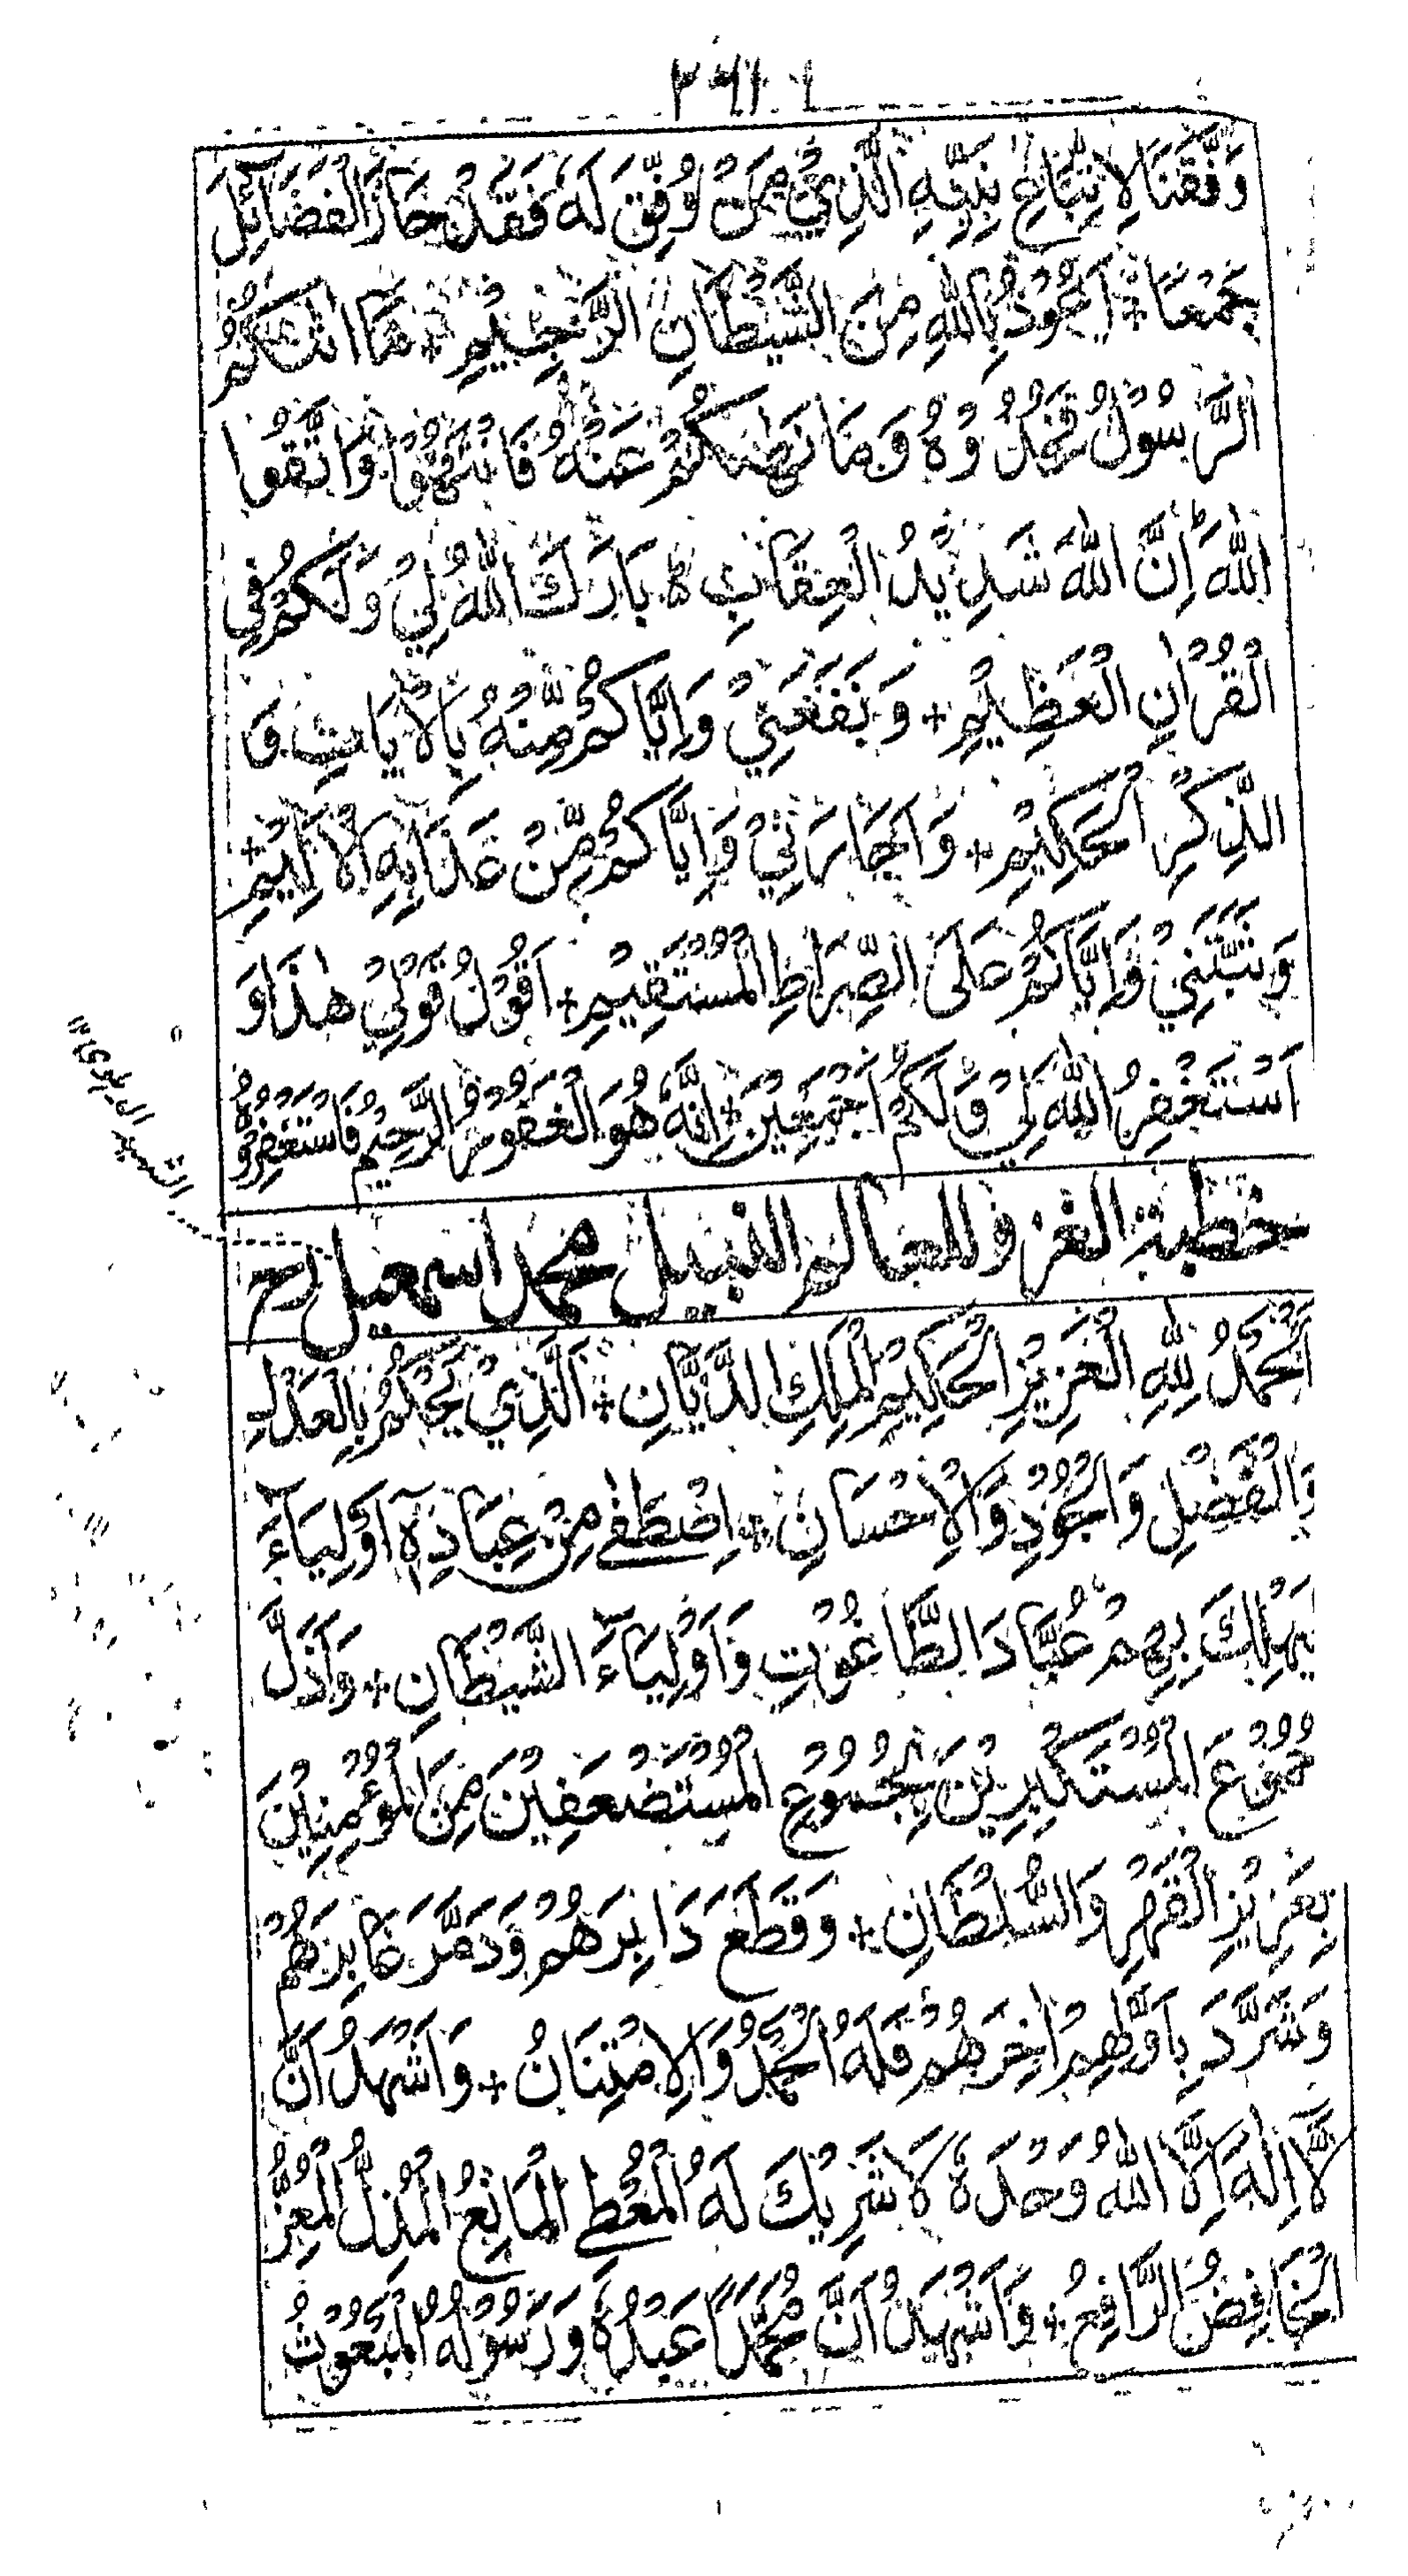 وَفَّقَنَا لِاتِّبَاعِ نَبِيِّهِ الَّذِيْ مَنْ وُفِّقَ لَهٗ فَقَدْ حَازَ الْفَضَآئِلَ
جَمْعًا + اَعُوْذُ بِاللّٰهِ مِنَ الشَّيْطَانِ الرَّجِيْمِ + مَا اٰتٰكُمُ
الرَّسُوْلُ فَخُذُوْهُ وَمَا نَهٰىكُمْ عَنْهُ فَانْتَهُوْا وَاتَّقُوا
اللّٰهَ ؕ اِنَّ اللّٰهَ شَدِيْدُ الْعِقَابِ ؕ بَارَكَ اللّٰهُ لِيْ وَلَكُمْ فِي
الْقُرْاٰنِ الْعَظِيْمِ + وَنَفَعَنِيْ وَاِيَّاكُمْ مِّنْهُ بِالْاٰيَاتِ وَ
الذِّكْرِ الْحَكِيْمِ + وَاَجَارَنِيْ وَاِيَّاكُمْ مِّنْ عَذَابِهِ الْاَلِيْمِ +
وَثَبَّتَنِيْ وَاِيَّاكُمْ عَلَى الصِّرَاطِ الْمُسْتَقِيْمِ + اَقُوْلُ قَوْلِيْ هٰذَا وَ
اَسْتَغْفِرُ اللّٰهَ لِيْ وَلَكُمْ اَجْمَعِيْنَ + اِنَّهٗ هُوَ الْغَفُوْرُ الرَّحِيْمُ فَاسْتَغْفِرُوْهُ
خطبة الغزو للعالم النبيل محمد اسمعيل رح
الشهيد الدهلوي ١٢
اَلْحَمْدُ لِلّٰهِ الْعَزِيْزِ الْحَكِيْمِ الْمَلِكِ الدَّيَّانِ + اَلَّذِيْ يَحْكُمُ بِالْعَدْلِ
وَالْفَضْلِ وَالْجُوْدِ وَالْاِحْسَانِ + اِصْطَفٰى مِنْ عِبَادِهٖٓ اَوْلِيَآءَ
يُهْلِكَ بِهِمْ عُبَّادَ الطَّاغُوْتِ وَاَوْلِيَآءَ الشَّيْطَانِ + وَاَذَلَّ
جُمُوْعَ الْمُسْتَكْبِرِيْنَ بِجُمُوْعِ الْمُسْتَضْعَفِيْنَ مِنَ الْمُؤْمِنِيْنَ
بِعَزِيْزِ الْقَهْرِ وَالسُّلْطَانِ + وَقَطَعَ دَابِرَهُمْ وَدَمَّرَ كَابِرَهُمْ
وَشَرَّدَ بِاَوَّلِهِمْ اٰخِرَهُمْ فَلَهُ الْحَمْدُ وَالْاِمْتِنَانُ + وَاَشْهَدُ اَنْ
لَّآ اِلٰهَ اِلَّا اللّٰهُ وَحْدَهٗ لَا شَرِيْكَ لَهُ الْمُعْطِي الْمَانِعُ الْمُذِلُّ الْمُعِزُّ
الْخَافِضُ الرَّافِعُ + وَاَشْهَدُ اَنَّ مُحَمَّدًا عَبْدُهٗ وَرَسُوْلُهُ الْمَبْعُوْثُ